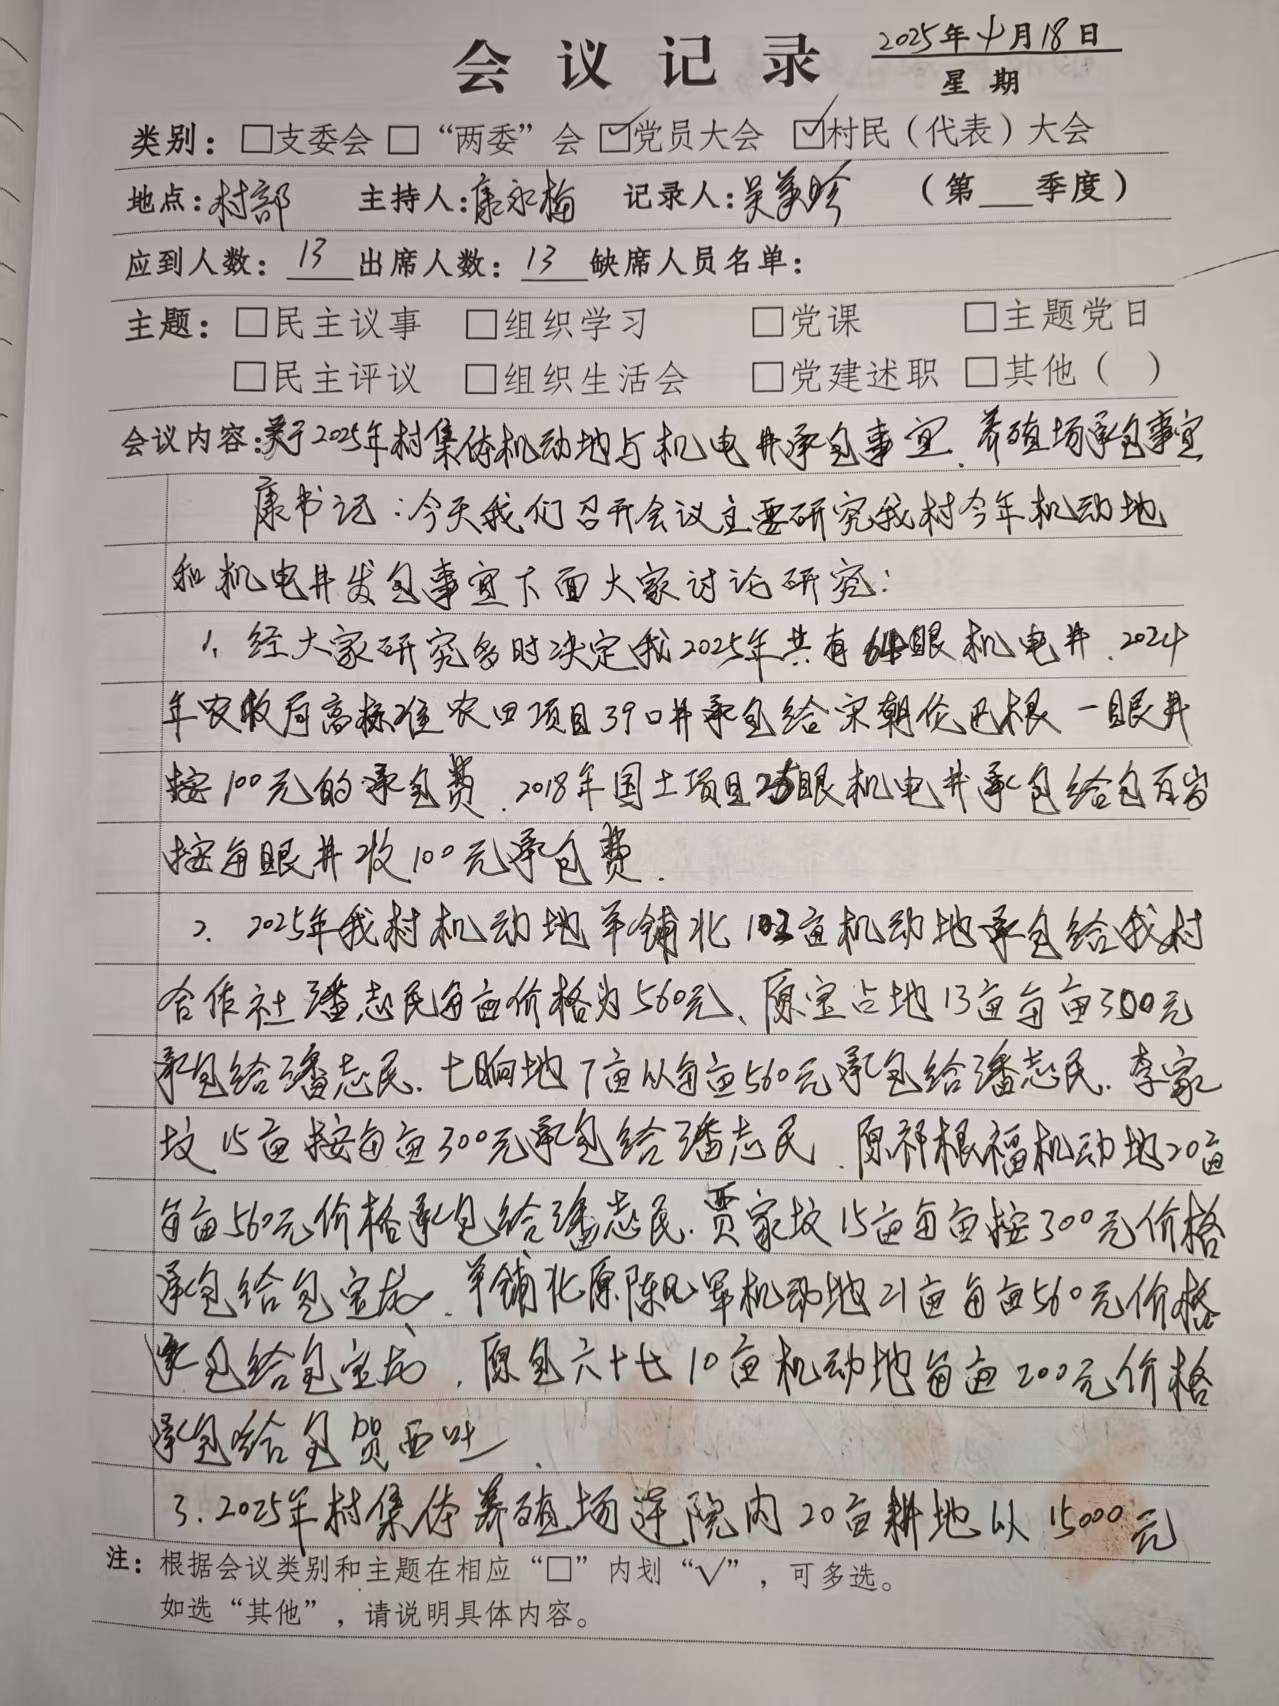 会议记录
2025年4月18日
星期
类别：□支委会 □“两委”会 ☑党员大会 ☑村民（代表）大会
地点：村部 主持人：康永梅 记录人：吴美玲 （第___季度）
应到人数：13 出席人数：13 缺席人员名单：
主题：□民主议事 □组织学习 □党课 □主题党日
□民主评议 □组织生活会 □党建述职 □其他（ ）
会议内容：关于2025年村集体机动地与机电井承包事宜、养殖场承包事宜
康书记：今天我们召开会议主要研究我村今年机动地
和机电井发包事宜下面大家讨论研究：
1、经大家研究多时决定我2025年共有64眼机电井、2024
年农牧局高标准农田项目39口井承包给宋朝伦巴根一眼井
按100元的承包费、2018年国土项目25眼机电井承包给包百岁
按每眼井收100元承包费.
2、2025年我村机动地羊铺北102亩机动地承包给我村
合作社潘志民每亩价格为560元、原宝占地13亩每亩300元
承包给潘志民、七晌地7亩以每亩560元承包给潘志民、李家
坟15亩按每亩300元承包给潘志民、原祥根福机动地20亩
每亩560元价格承包给潘志民、贾家坟15亩每亩按300元价格
承包给包宝龙、羊铺北原陈军机动地21亩每亩560元价格
承包给包宝龙、原包六十七10亩机动地每亩200元价格
承包给包贺西吐、
3、2025年村集体养殖场连院内20亩耕地以15000元
注：根据会议类别和主题在相应“□”内划“√”，可多选。
如选“其他”，请说明具体内容。